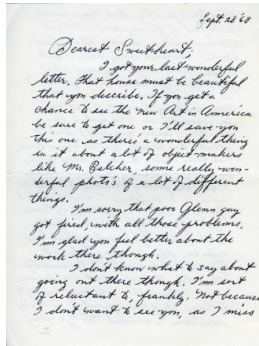 Sept. 28 '68
Dearest Sweetheart,
I got your last wonderful
letter, that house must be beautiful
that you describe. If you get a
chance to see the new Art in America
be sure to get one or I'll save you
this one as there's a wonderful thing
in it about a lot of object-makers
like Mr. Belcher, some really won-
derful photo's of a lot of different
things.
I'm sorry that poor Glenn guy
got fired, with all those problems.
I'm glad you feel better about the
work there though.
I don't know what to say about
going out there though. I'm sort
of reluctant to, frankly. Not because
I don't want to see you, as I miss